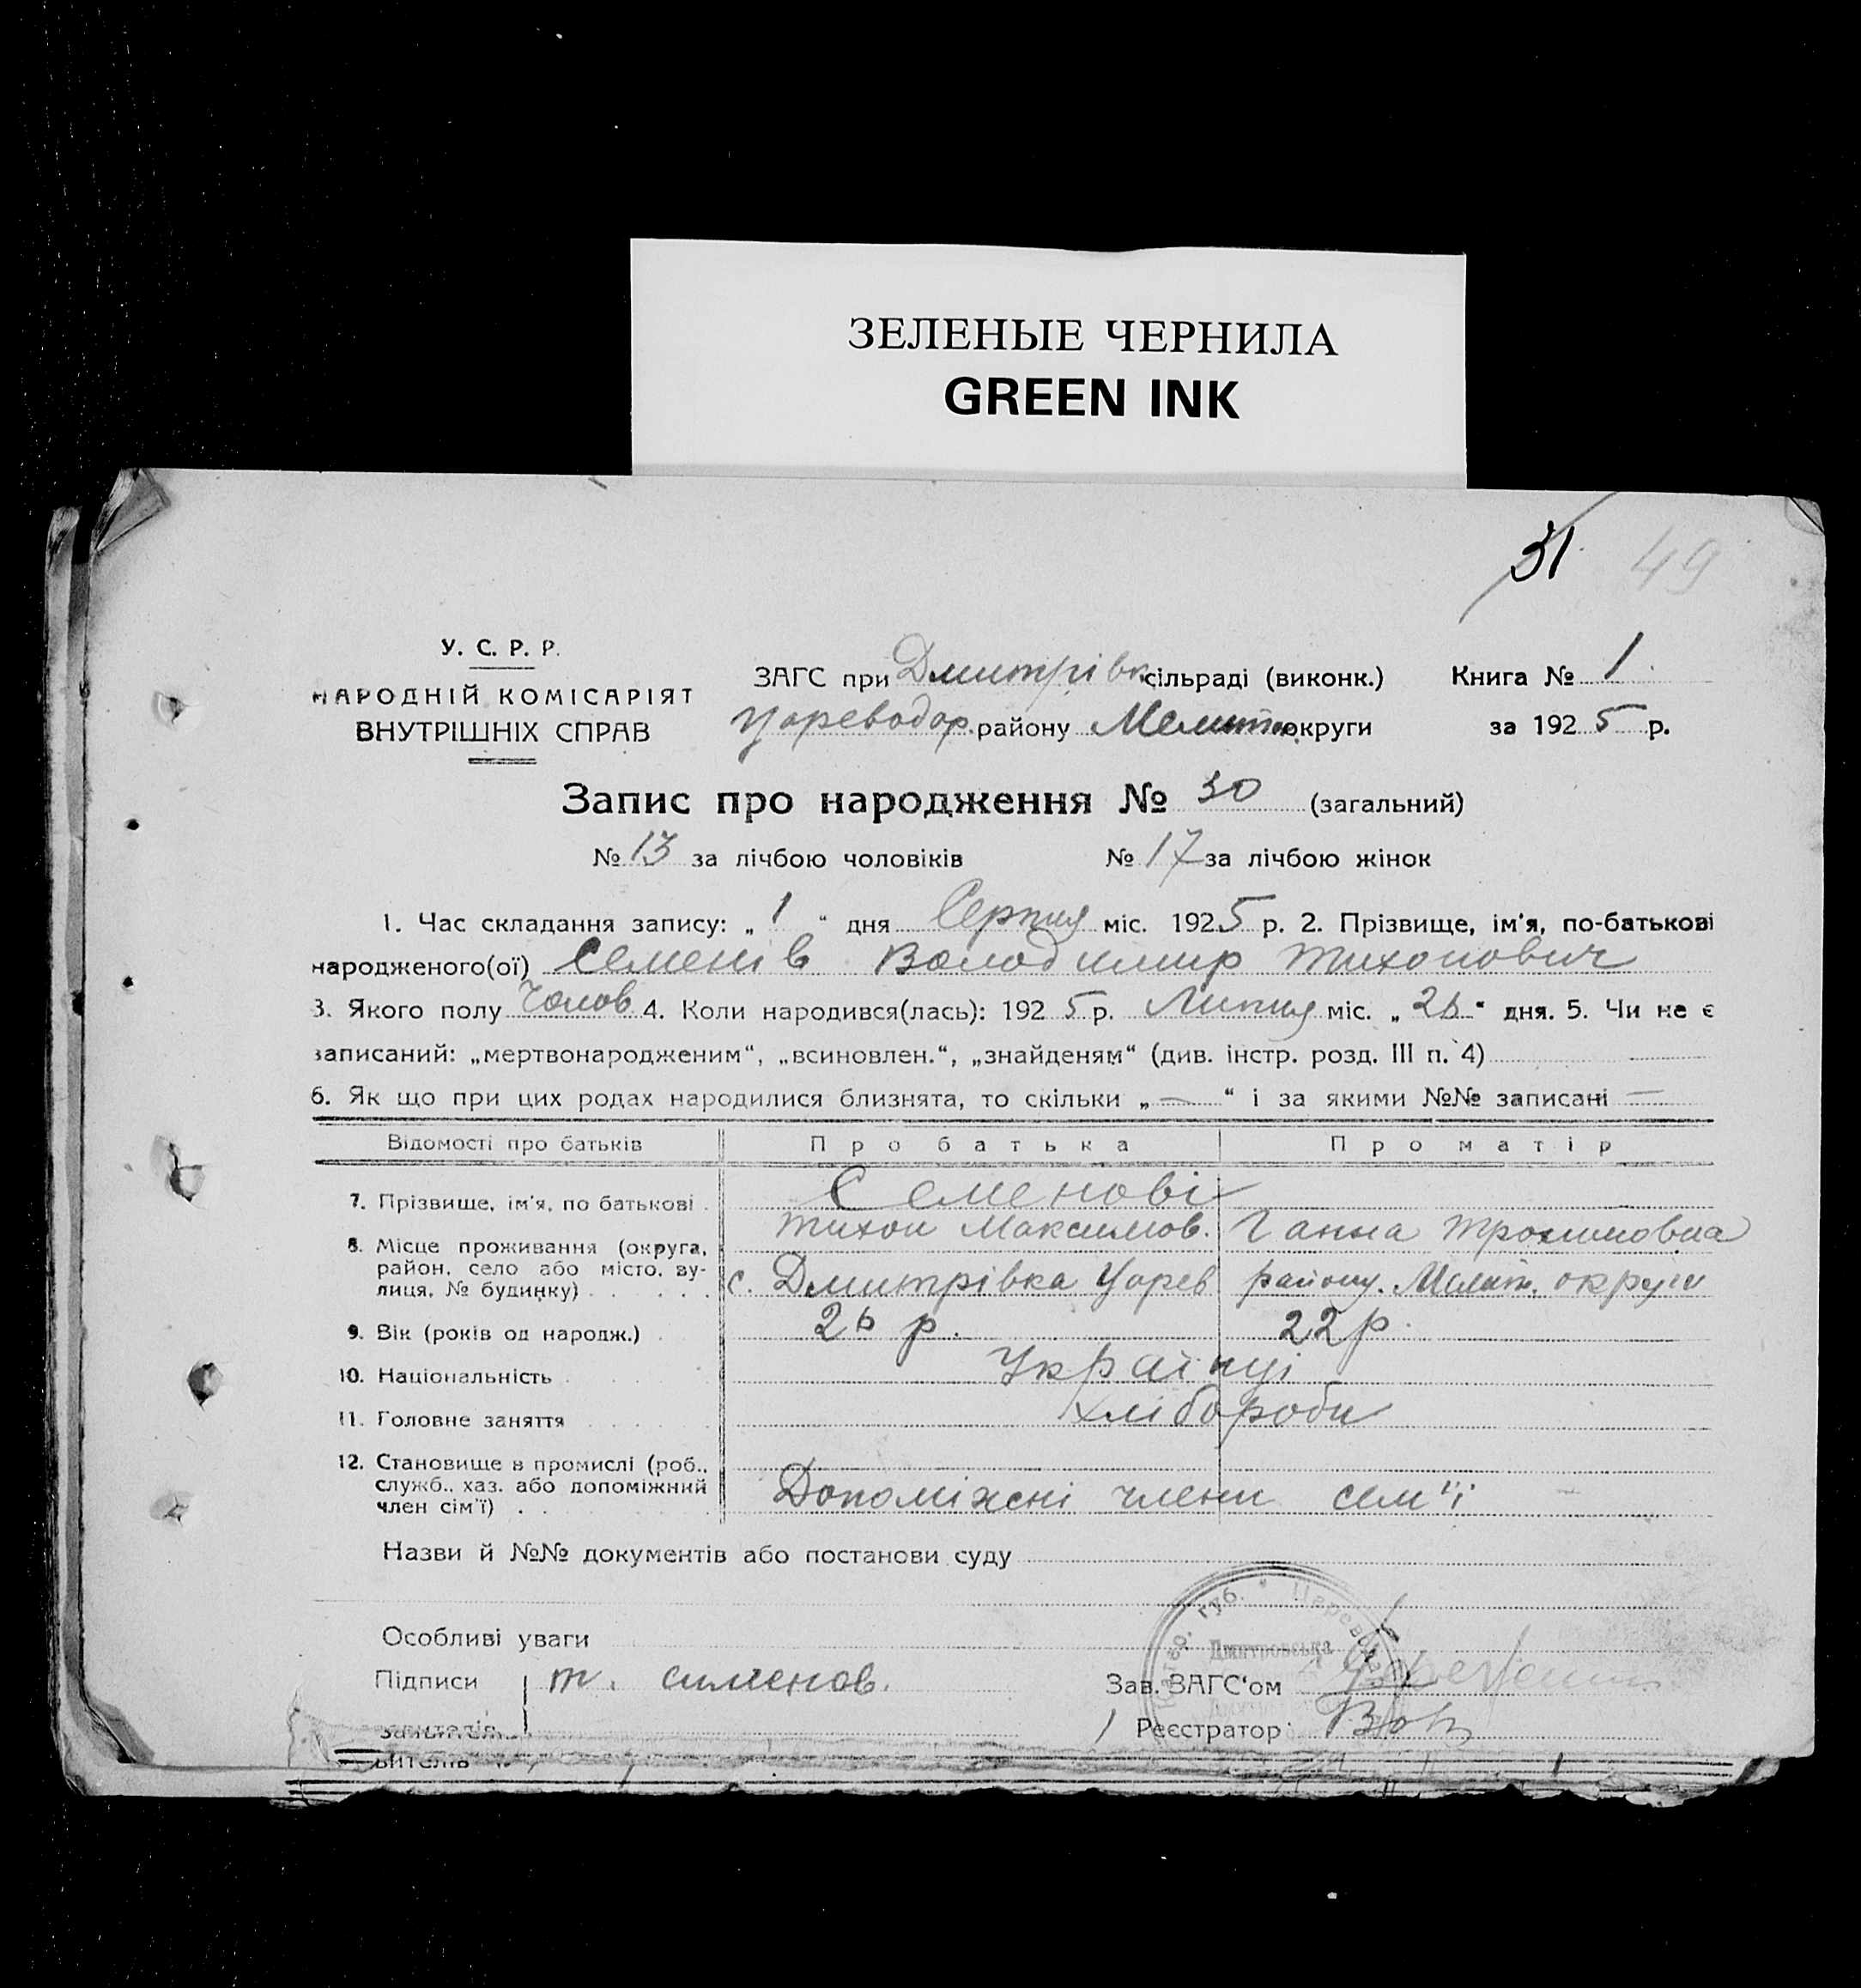 ЗЕЛЕНЫЕ ЧЕРНИЛА
GREEN INK
31 49
У. С. Р. Р.
НАРОДНІЙ КОМІСАРІЯТ
ВНУТРІШНІХ СПРАВ
ЗАГС при Дмитрівк. сільраді (виконк.) Книга № 1
Цареводар. району Мелитоп. округи за 1925 р.
Запис про народження № 30 (загальний)
№ 13 за лічбою чоловіків № 17 за лічбою жінок
1. Час складання запису: „ 1 " дня Серпня міс. 1925 р. 2. Прізвище, ім'я, по-батькові
народженого(ої) Семенів Володимир Тихонович
3. Якого полу Чолов. 4. Коли народився(лась): 1925 р. Липня міс. „ 26 " дня. 5. Чи не є
записаний: „мертвонародженим“, „всиновлен.“, „знайденям“ (див. інстр. розд. III п. 4)
6. Як що при цих родах народилися близнята, то скільки „ — “ і за якими №№ записані —
Відомості про батьків Про батька Про матір
7. Прізвище, ім'я, по батькові Семенові
Тихон Максимов. Ганна Трохимовна
8. Місце проживання (округа,
район, село або місто, ву-
лиця, № будинку) с. Дмитрівка Царев району. Мелит. округи
9. Вік (років од народж.) 26 р. 22 р.
10. Національність Українці
11. Головне заняття хлібороби
12. Становище в промислі (роб.,
служб., хаз. або допоміжний
член сім'ї) Допоміжні члени сем'ї
Назви й №№ документів або постанови суду
Особливі уваги
губ.
Дмитровська
Підписи т. сименов. Зав. ЗАГС'ом
Реєстратор: